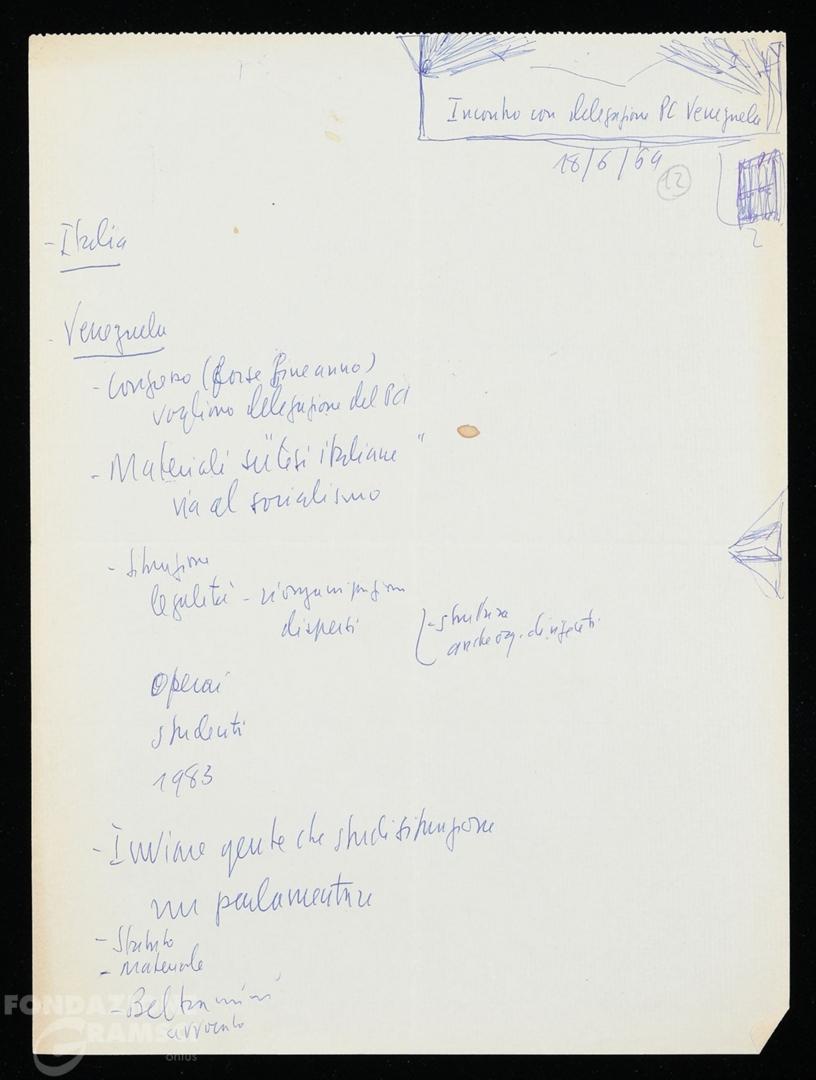 Incontro con delegazione PC Venezuela
18/6/69
12
- Italia
- Venezuela
- Congresso (forse fine anno)
vogliono delegazione del PCI
- Materiali su "tesi italiane"
via al socialismo
- situazione
legalità - riorganizzazione
dispersi
- struttura
anche org. dirigenti
operai
studenti
1983
- Inviare gente che studi situazione
un parlamentare
- Statuto
- materiale
- Beltramini
avvocato
FONDAZIONE
GRAMSCI
onlus